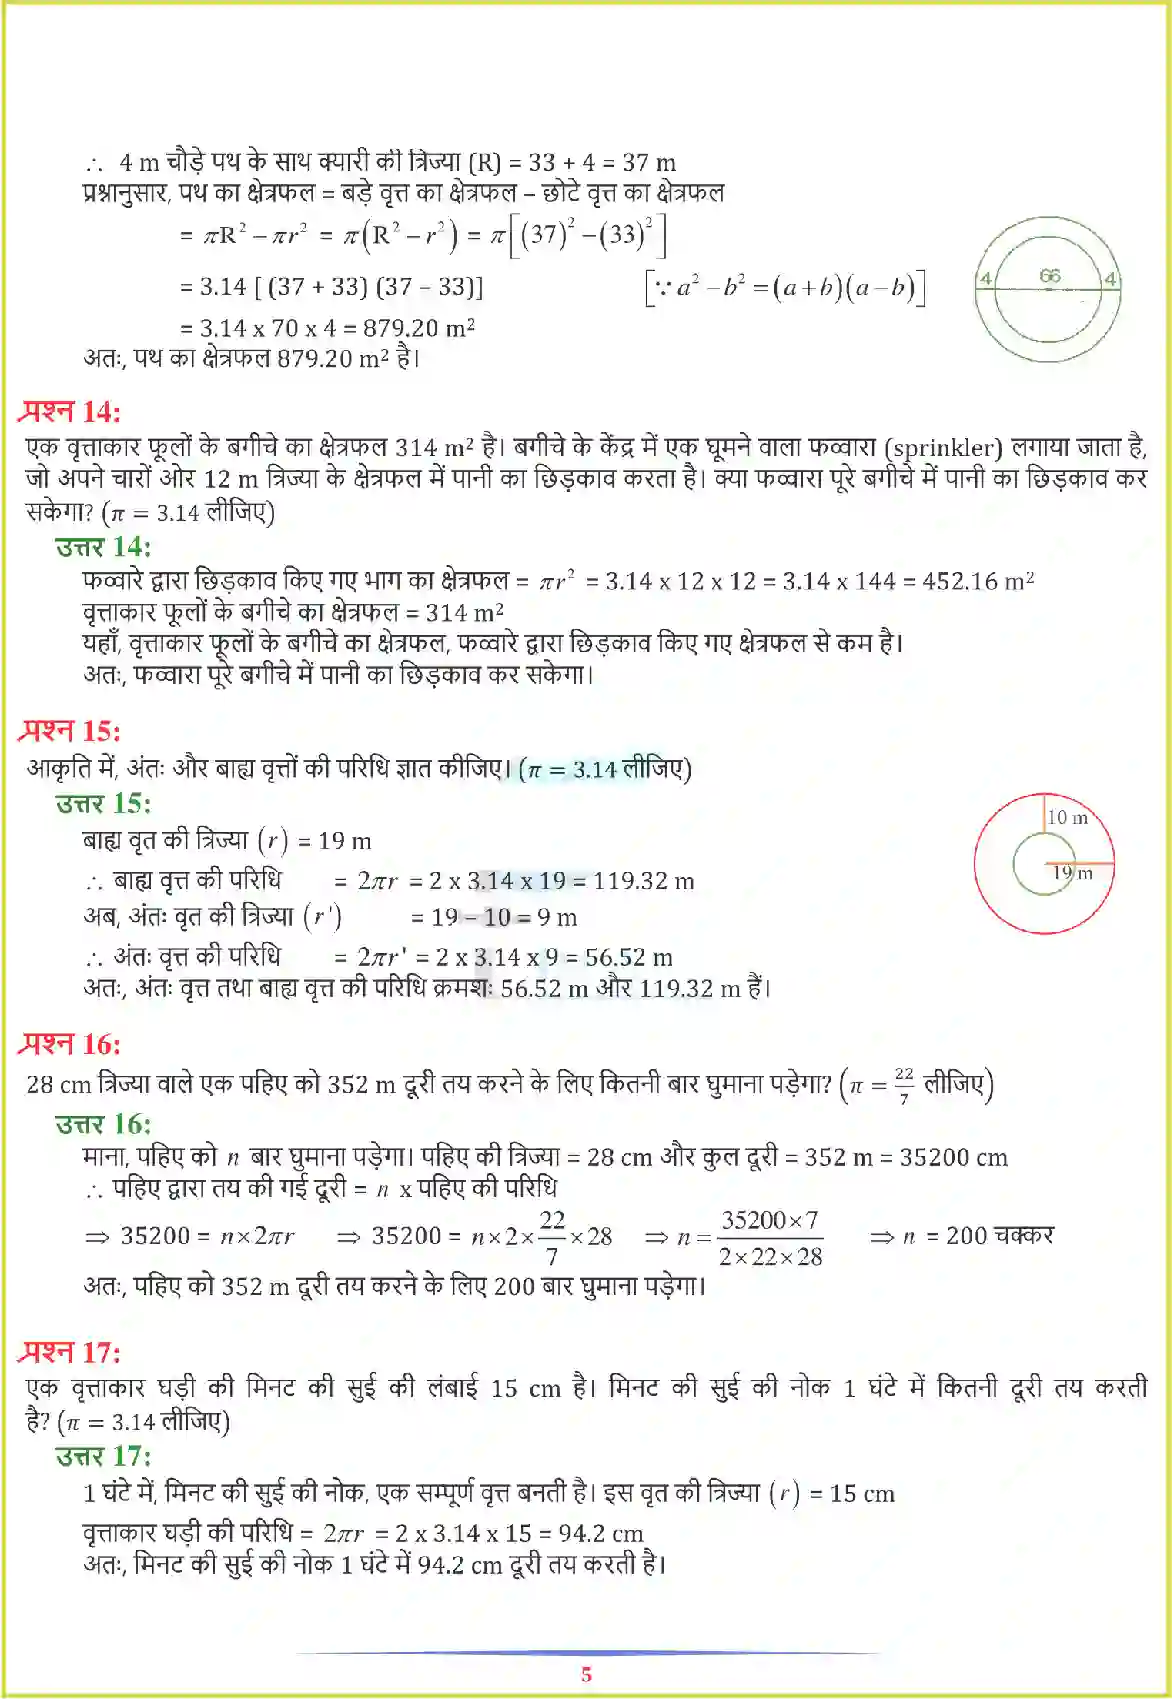 ∴ 4 m चौड़े पथ के साथ क्यारी की त्रिज्या (R) = 33 + 4 = 37 m
प्रश्नानुसार, पथ का क्षेत्रफल = बड़े वृत्त का क्षेत्रफल – छोटे वृत्त का क्षेत्रफल
= πR² − πr² = π(R² − r²) = π[(37)² − (33)²]
= 3.14 [ (37 + 33) (37 – 33)] [∵ a² − b² = (a + b)(a − b)]
= 3.14 x 70 x 4 = 879.20 m²
अतः, पथ का क्षेत्रफल 879.20 m² है।
4 66 4
प्रश्न 14:
एक वृत्ताकार फूलों के बगीचे का क्षेत्रफल 314 m² है। बगीचे के केंद्र में एक घूमने वाला फव्वारा (sprinkler) लगाया जाता है,
जो अपने चारों ओर 12 m त्रिज्या के क्षेत्रफल में पानी का छिड़काव करता है। क्या फव्वारा पूरे बगीचे में पानी का छिड़काव कर
सकेगा? (π = 3.14 लीजिए)
उत्तर 14:
फव्वारे द्वारा छिड़काव किए गए भाग का क्षेत्रफल = πr² = 3.14 x 12 x 12 = 3.14 x 144 = 452.16 m²
वृत्ताकार फूलों के बगीचे का क्षेत्रफल = 314 m²
यहाँ, वृत्ताकार फूलों के बगीचे का क्षेत्रफल, फव्वारे द्वारा छिड़काव किए गए क्षेत्रफल से कम है।
अतः, फव्वारा पूरे बगीचे में पानी का छिड़काव कर सकेगा।
प्रश्न 15:
आकृति में, अंतः और बाह्य वृत्तों की परिधि ज्ञात कीजिए। (π = 3.14 लीजिए)
उत्तर 15:
बाह्य वृत की त्रिज्या (r) = 19 m
∴ बाह्य वृत्त की परिधि = 2πr = 2 x 3.14 x 19 = 119.32 m
अब, अंतः वृत की त्रिज्या (r') = 19 – 10 = 9 m
∴ अंतः वृत्त की परिधि = 2πr' = 2 x 3.14 x 9 = 56.52 m
अतः, अंतः वृत्त तथा बाह्य वृत्त की परिधि क्रमशः 56.52 m और 119.32 m हैं।
10 m
19 m
प्रश्न 16:
28 cm त्रिज्या वाले एक पहिए को 352 m दूरी तय करने के लिए कितनी बार घुमाना पड़ेगा? (π = 22/7 लीजिए)
उत्तर 16:
माना, पहिए को n बार घुमाना पड़ेगा। पहिए की त्रिज्या = 28 cm और कुल दूरी = 352 m = 35200 cm
∴ पहिए द्वारा तय की गई दूरी = n x पहिए की परिधि
⇒ 35200 = n×2πr ⇒ 35200 = n×2×22/7×28 ⇒ n = 35200×7/2×22×28 ⇒ n = 200 चक्कर
अतः, पहिए को 352 m दूरी तय करने के लिए 200 बार घुमाना पड़ेगा।
प्रश्न 17:
एक वृत्ताकार घड़ी की मिनट की सुई की लंबाई 15 cm है। मिनट की सुई की नोक 1 घंटे में कितनी दूरी तय करती
है? (π = 3.14 लीजिए)
उत्तर 17:
1 घंटे में, मिनट की सुई की नोक, एक सम्पूर्ण वृत्त बनती है। इस वृत की त्रिज्या (r) = 15 cm
वृत्ताकार घड़ी की परिधि = 2πr = 2 x 3.14 x 15 = 94.2 cm
अतः, मिनट की सुई की नोक 1 घंटे में 94.2 cm दूरी तय करती है।
5